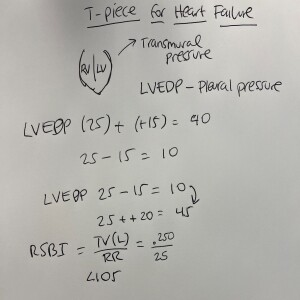 T-piece for Heart Failure
Transmural
pressure
RV LV
LVEDP - Plaural pressure
LVEDP (25) + (+15) = 40
25 - 15 = 10
LVEDP 25 - 15 = 10
25 + + 20 = 45
RSBI = TV(L) / RR = .250 / 25
<105